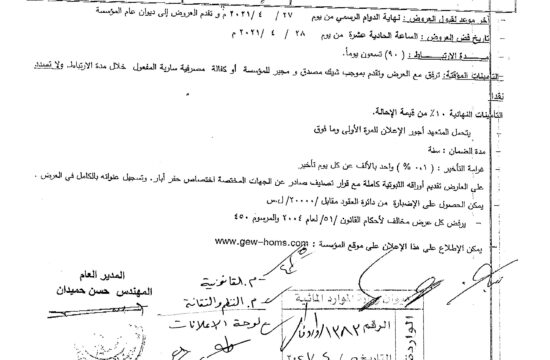 آخر موعد لقبول العروض : نهاية الدوام الرسمي من يوم ٢٧ / ٤ / ٢٠٢١ م و تقدم العروض إلى ديوان عام المؤسسة
تاريخ فض العروض : الساعة الحادية عشرة من يوم ٢٨ / ٤ / ٢٠٢١ م
مدة الارتباط : (٩٠) تسعون يوماً.
التأمينات المؤقتة: ترفق مع العرض وتقدم بموجب شيك مصدق و مجير للمؤسسة أو كفالة مصرفية سارية المفعول خلال مدة الارتباط. ولا تسدد
نقدا
التأمينات النهائية ١٠% من قيمة الإحالة.
يتحمل المتعهد أجور الإعلان للمرة الأولى وما فوق
مدة الضمان : سنة
غرامة التأخير : (٠.١ %) واحد بالألف عن كل يوم تأخير
على العارض تقديم أوراقه الثبوتية كاملة مع قرار تصنيف صادر عن الجهات المختصة اختصاص حفر آبار. وتسجيل عنوانه بالكامل في العرض .
يمكن الحصول على الإضبارة من دائرة العقود مقابل /٢٠٠٠٠/ ل.س
يرفض كل عرض مخالف لأحكام القانون /٥١/ لعام ٢٠٠٤ والمرسوم ٤٥٠
يمكن الإطلاع على هذا الإعلان على موقع المؤسسة : www.gew-homs.com
المدير العام
المهندس حسن حميدان
م. القانونية
م. النظم والتقانة
لوحة الإعلانات
الموارد المائية
الرقم ١٣٨٣
التاريخ
الوارد